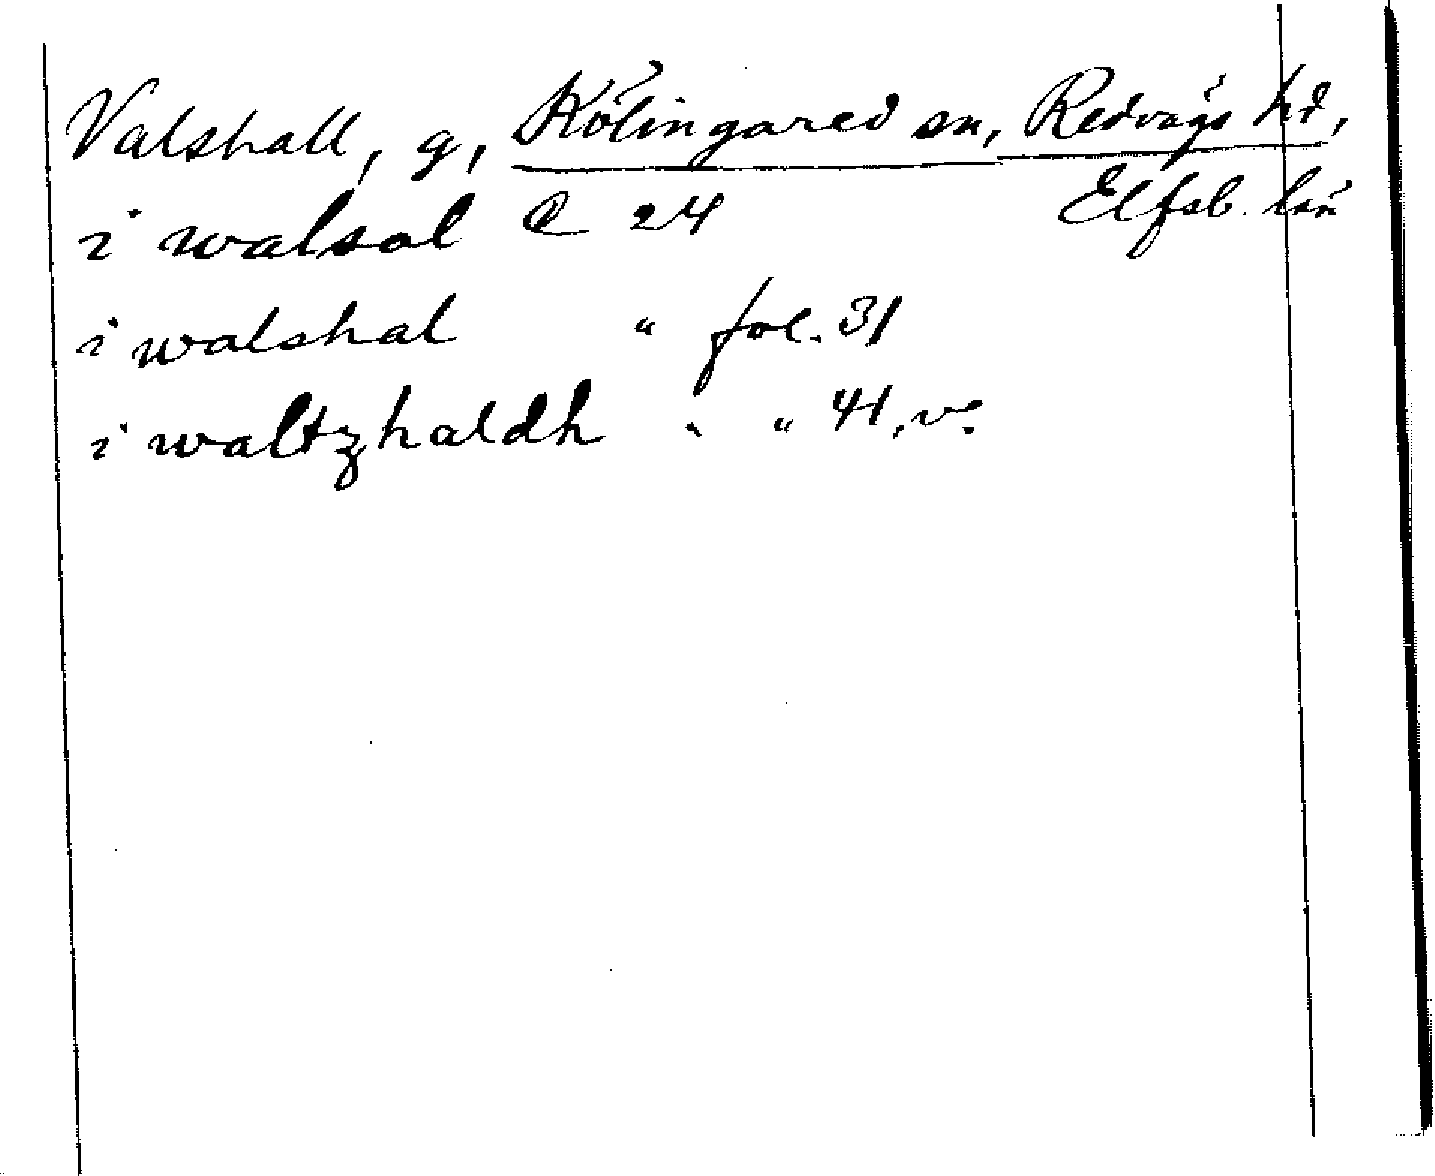 Valshall, g, Kölingared sn, Redvägs hd,
Elfsb. län
i walsal C 24
i walshal " fol. 31
i waltzhaldh " " 41, v.